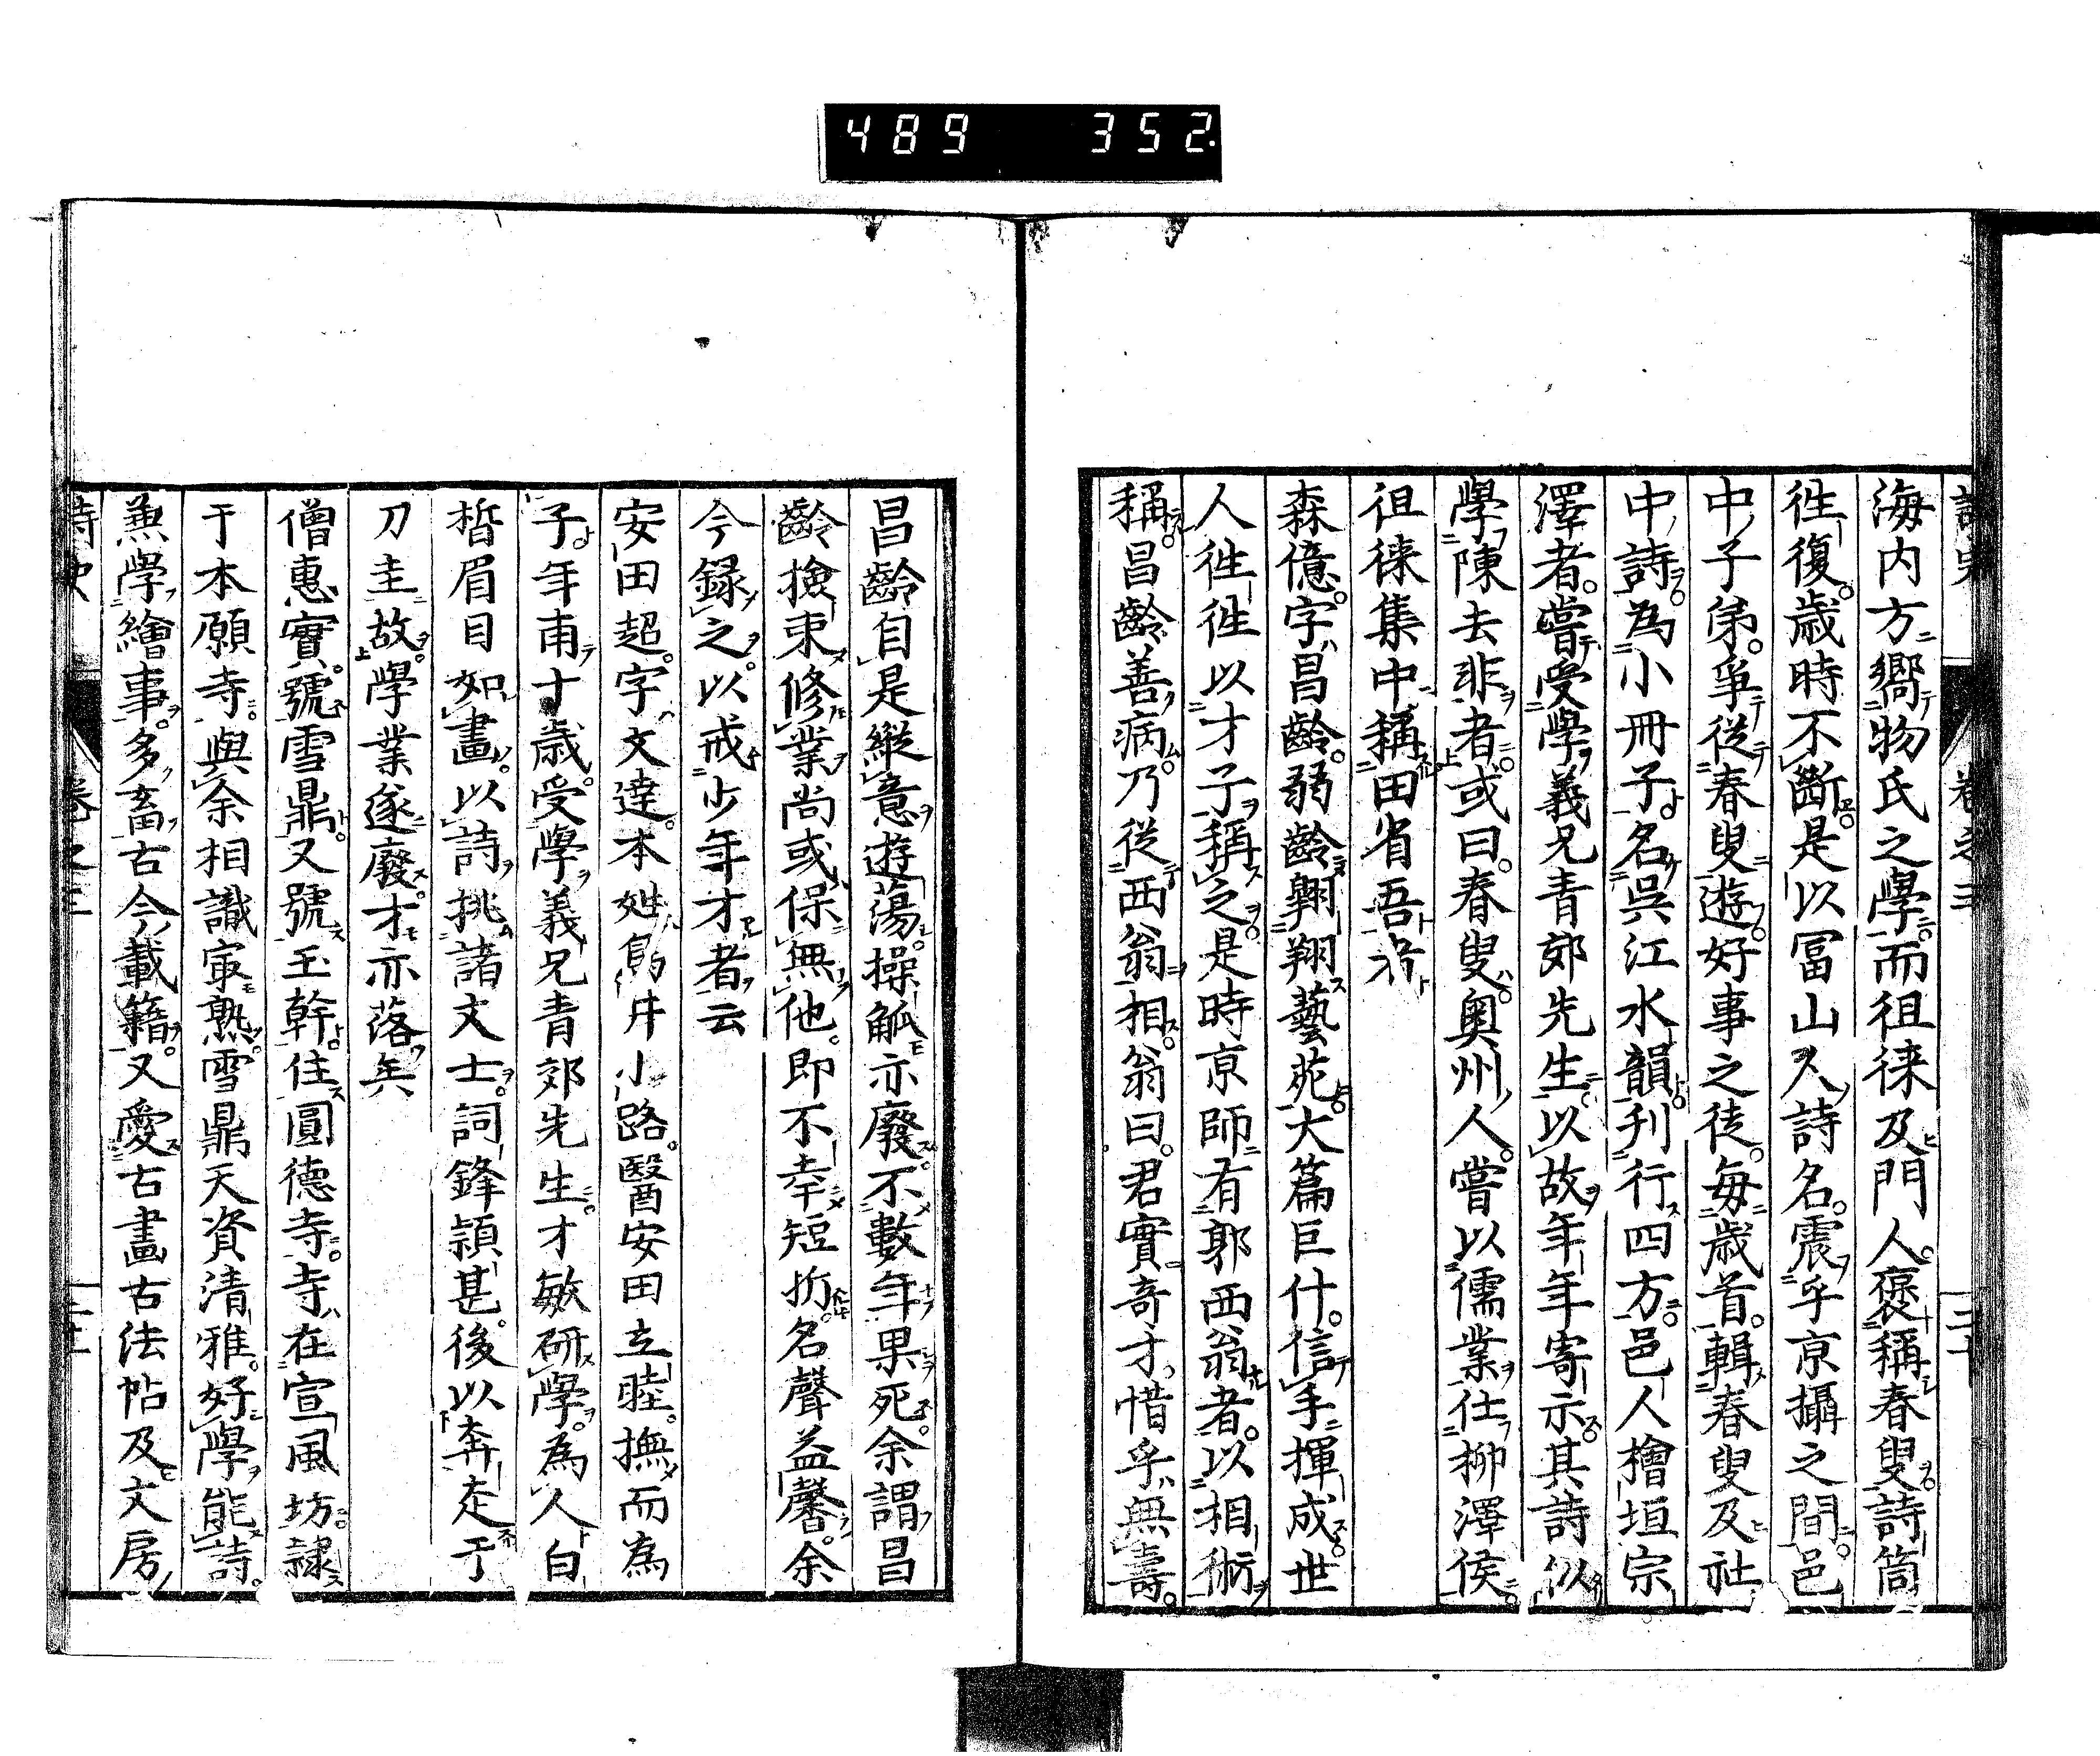 489 352
海内方嚮物氏之學而徂徠及門人褒稱春叟詩筒
徃復歲時不斷是以冨山人詩名震乎京攝之間邑
中子弟爭從春叟遊好事之徒每歲首輯春叟及社
中詩為小冊子名吳江水韻刊行四方邑人檜垣宗
澤者嘗受學義兄青郊先生以故年年寄示其詩似
學陳去非者或曰春叟奧州人嘗以儒業仕柳澤侯
徂徠集中稱田省吾者
森億字昌齡弱齡翺翔藝苑大篇巨什信手揮成世
人徃徃以才子稱之是時京師有郭西翁者以相術
稱昌齡善病乃從西翁相翁曰君實奇才惜乎無壽
昌齡自是縱意遊蕩操觚亦廢不數年果死余謂昌
齡撿束修業尚或保無他即不幸短折名聲益馨余
今録之以戒少年才者云
安田超字文達本姓駒井小路醫安田立睦撫而為
子年甫十歲受學義兄青郊先生才敏研學為人白
皙眉目如畫以詩挑諸文士詞鋒頴甚後以奔走于
刀圭故學業遂廢才亦落矣
僧惠實號雪鼎又號玉幹住圓德寺寺在宣風坊隷
于本願寺與余相識㝡熟雪鼎天資清雅好學能詩
兼學繪事多畜古今載籍又愛古畫古法帖及文房
詩史 卷之三